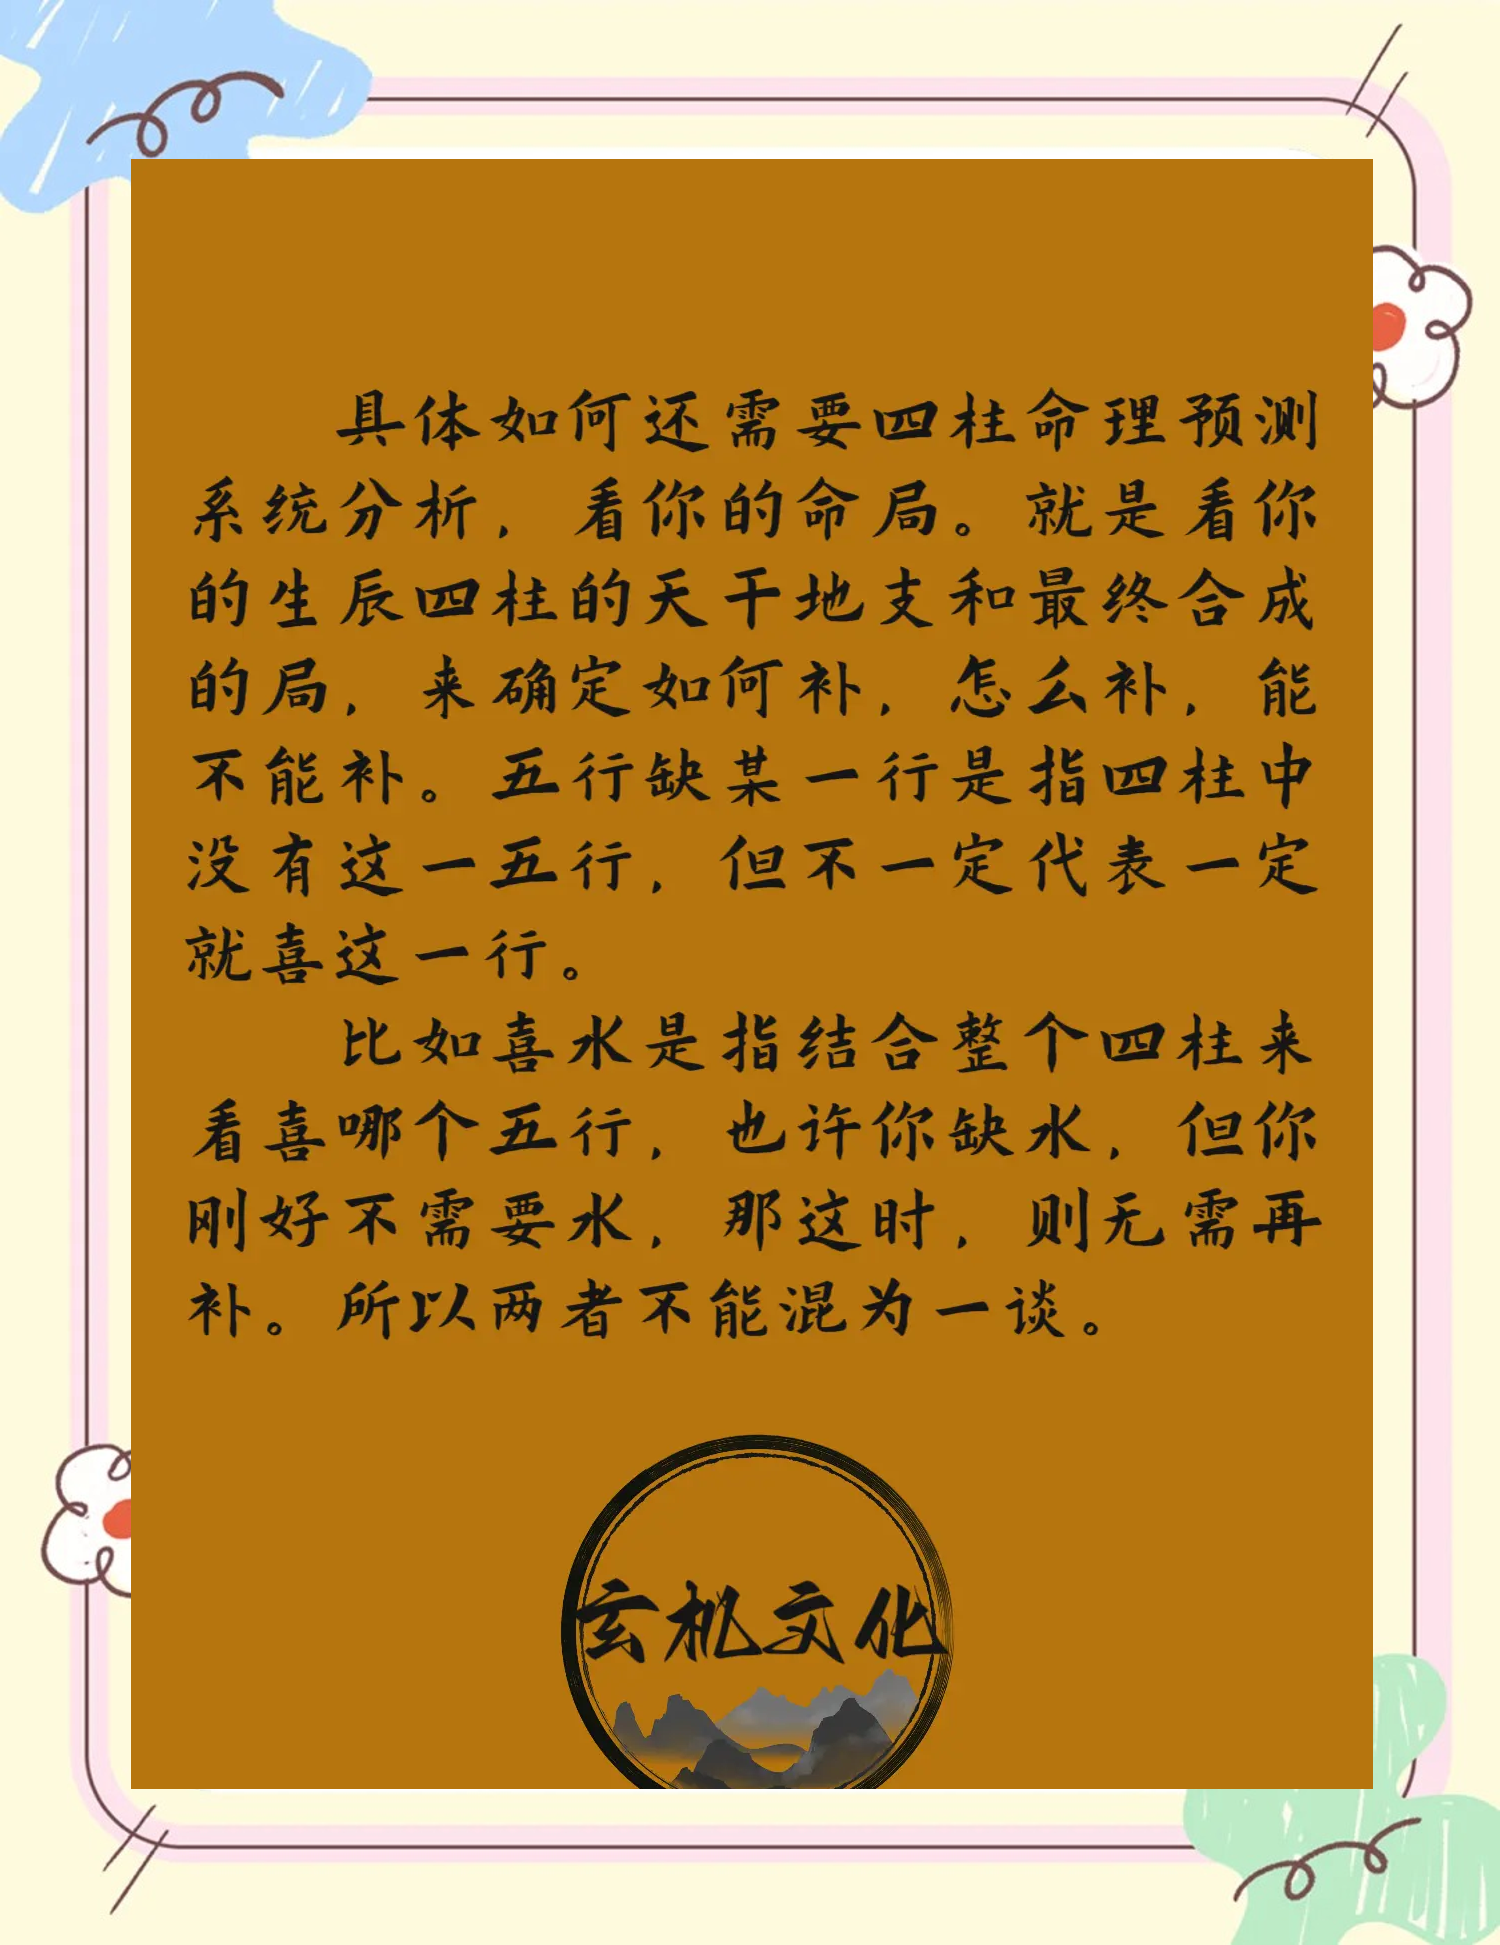 具体如何还需要四柱命理预测
系统分析，看你的命局。就是看你
的生辰四柱的天干地支和最终合成
的局，来确定如何补，怎么补，能
不能补。五行缺某一行是指四柱中
没有这一五行，但不一定代表一定
就喜这一行。
比如喜水是指结合整个四柱来
看喜哪个五行，也许你缺水，但你
刚好不需要水，那这时，则无需再
补。所以两者不能混为一谈。
玄机文化